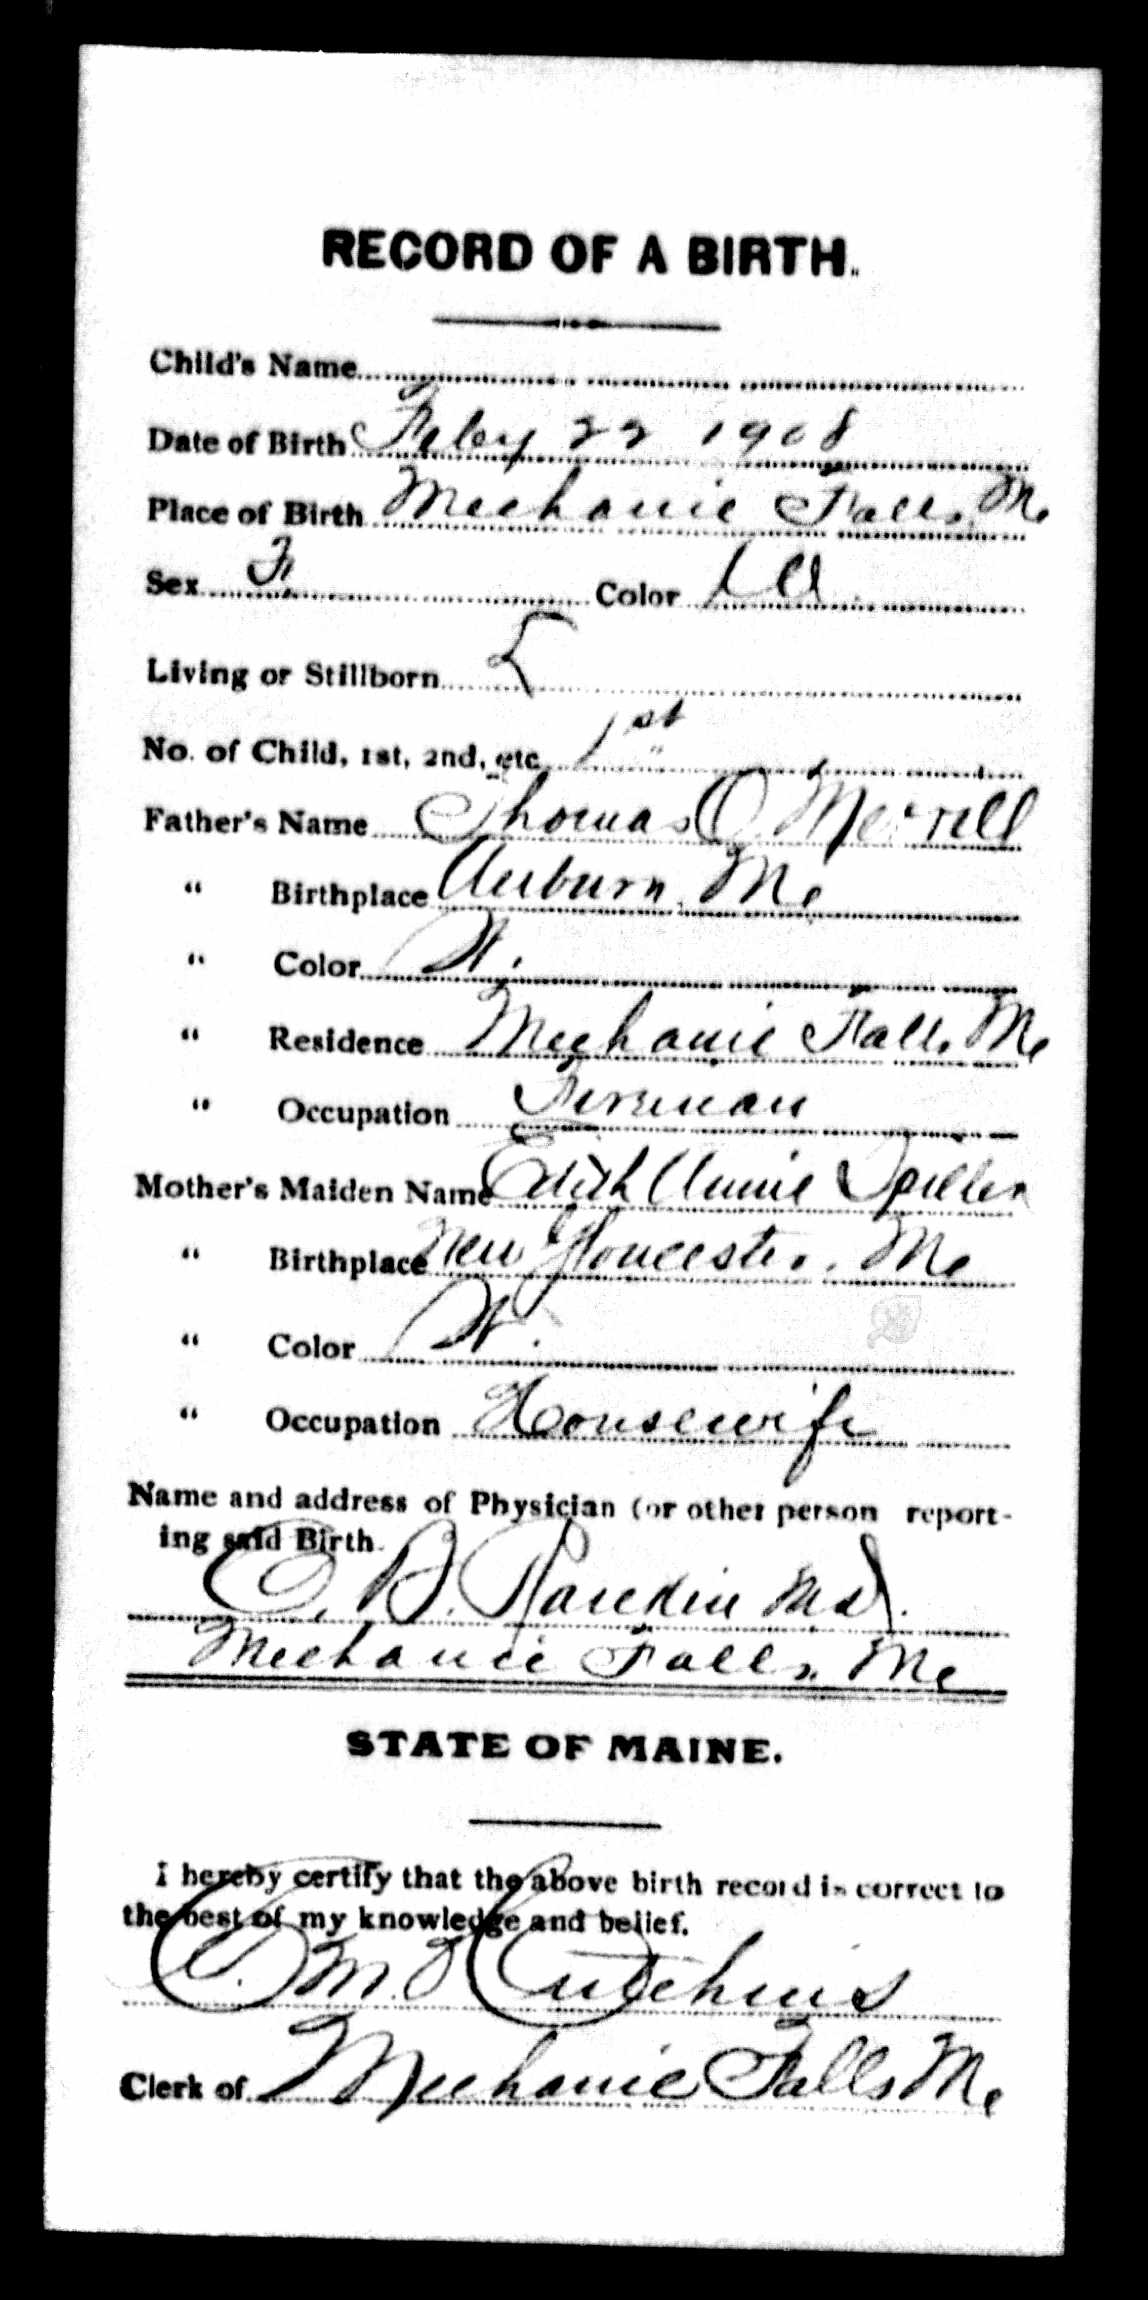 RECORD OF A BIRTH.
Child's Name
Date of Birth Feby 22 1908
Place of Birth Mechanic Falls, Me
Sex F. Color W
Living or Stillborn L
No. of Child, 1st, 2nd, etc. 1st
Father's Name Thomas O Merrill
" Birthplace Auburn, Me
" Color W.
" Residence Mechanic Falls Me
" Occupation Fireman
Mother's Maiden Name Edith Annie Spiller
" Birthplace New Gloucester, Me
" Color W.
" Occupation Housewife
Name and address of Physician (or other person report-
ing said Birth.
B. Md.
Mechanic Falls, Me
STATE OF MAINE.
I hereby certify that the above birth record is correct to
the best of my knowledge and belief.
M.
Clerk of Mechanic Falls Me